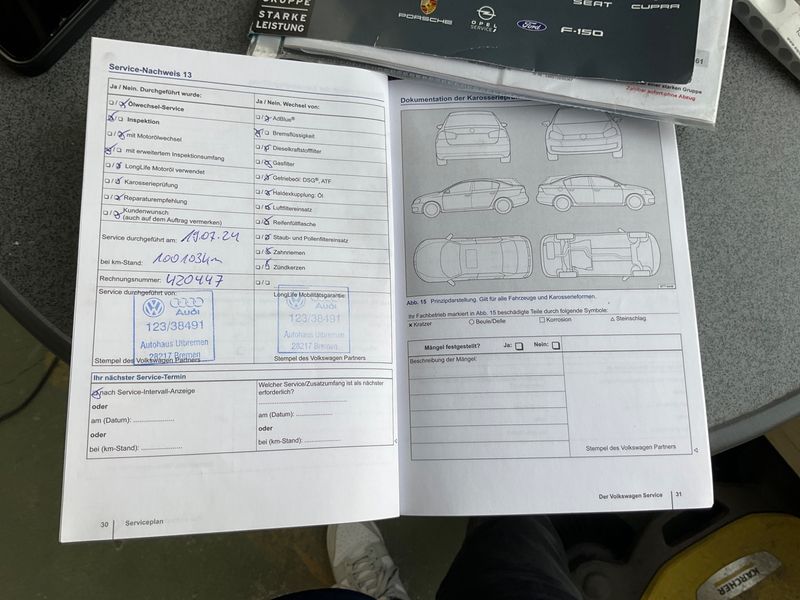 GRUPPE
STARKE
LEISTUNG
PORSCHE
OPEL
SERVICE
Ford
F-150
SEAT
CUPRA
einer starken Gruppe
Zahlbar sofort ohne Abzug
61
Service-Nachweis 13
Ja / Nein. Durchgeführt wurde:
Ölwechsel-Service
Inspektion
mit Motorölwechsel
mit erweitertem Inspektionsumfang
LongLife Motoröl verwendet
Karosserieprüfung
Reparaturempfehlung
Kundenwunsch
(auch auf dem Auftrag vermerken)
Service durchgeführt am: 19.07.24
bei km-Stand: 100103km
Rechnungsnummer: 420447
Service durchgeführt von:
Audi
123/38491
Autohaus Utbremen
28217 Bremen
Stempel des Volkswagen Partners
Ja / Nein. Wechsel von:
AdBlue®
Bremsflüssigkeit
Dieselkraftstofffilter
Gasfilter
Getriebeöl: DSG®, ATF
Haldexkupplung: Öl
Luftfiltereinsatz
Reifenfüllflasche
Staub- und Pollenfiltereinsatz
Zahnriemen
Zündkerzen
LongLife Mobilitätsgarantie:
Audi
123/38491
Autohaus Utbremen
28217 Bremen
Stempel des Volkswagen Partners
Ihr nächster Service-Termin
nach Service-Intervall-Anzeige
oder
am (Datum): ..................
oder
bei (km-Stand): ..................
Welcher Service/Zusatzumfang ist als nächster
erforderlich?
am (Datum): ..................
oder
bei (km-Stand): ..................
30 Serviceplan
Dokumentation der Karosserieprüf
Abb. 15 Prinzipdarstellung. Gilt für alle Fahrzeuge und Karosserieformen.
Ihr Fachbetrieb markiert in Abb. 15 beschädigte Teile durch folgende Symbole:
x Kratzer ○ Beule/Delle □ Korrosion △ Steinschlag
Mängel festgestellt? Ja: Nein:
Beschreibung der Mängel:
Stempel des Volkswagen Partners
Der Volkswagen Service 31
KÄRCHER